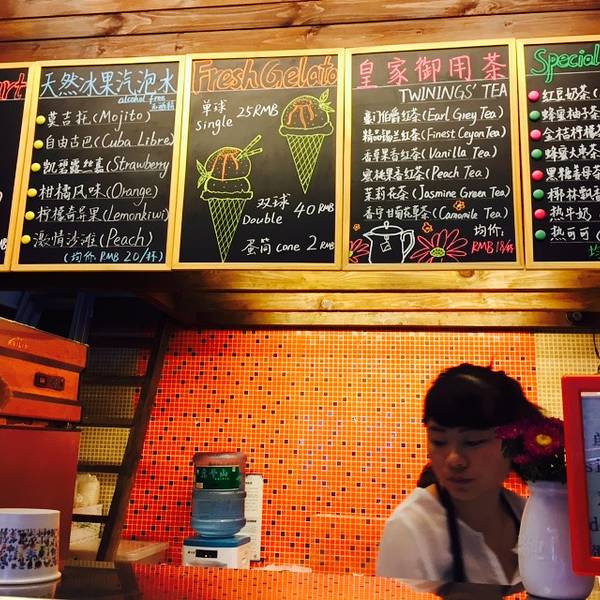 天然冰果汽泡水
alcohol free
莫吉托(Mojito)
自由古巴(Cuba Libre)
(Strawberry
柑橘风味(Orange)
柠檬奇异果(Lemonkiwi)
激情沙滩(Peach)
(均价: RMB 20/杯)
Fresh Gelato
单球 25RMB
Single
双球
Double 40 RMB
蛋筒 Cone 2 RMB
皇家御用茶
TWININGS' TEA
豪门伯爵红茶(Earl Grey Tea)
精品锡兰红茶(Finest Ceyan Tea)
香草果香红茶(Vanilla Tea)
蜜桃果香红茶(Peach Tea)
茉莉花茶(Jasmine Green Tea)
香宁甘菊花草茶(Camomile Tea)
均价:
RMB 18/杯
Special
红豆奶茶(
蜂蜜柚子茶
金桔柠檬茶
蜂蜜大枣茶
黑糖姜母茶
椰林飘香
热牛奶
热可可(